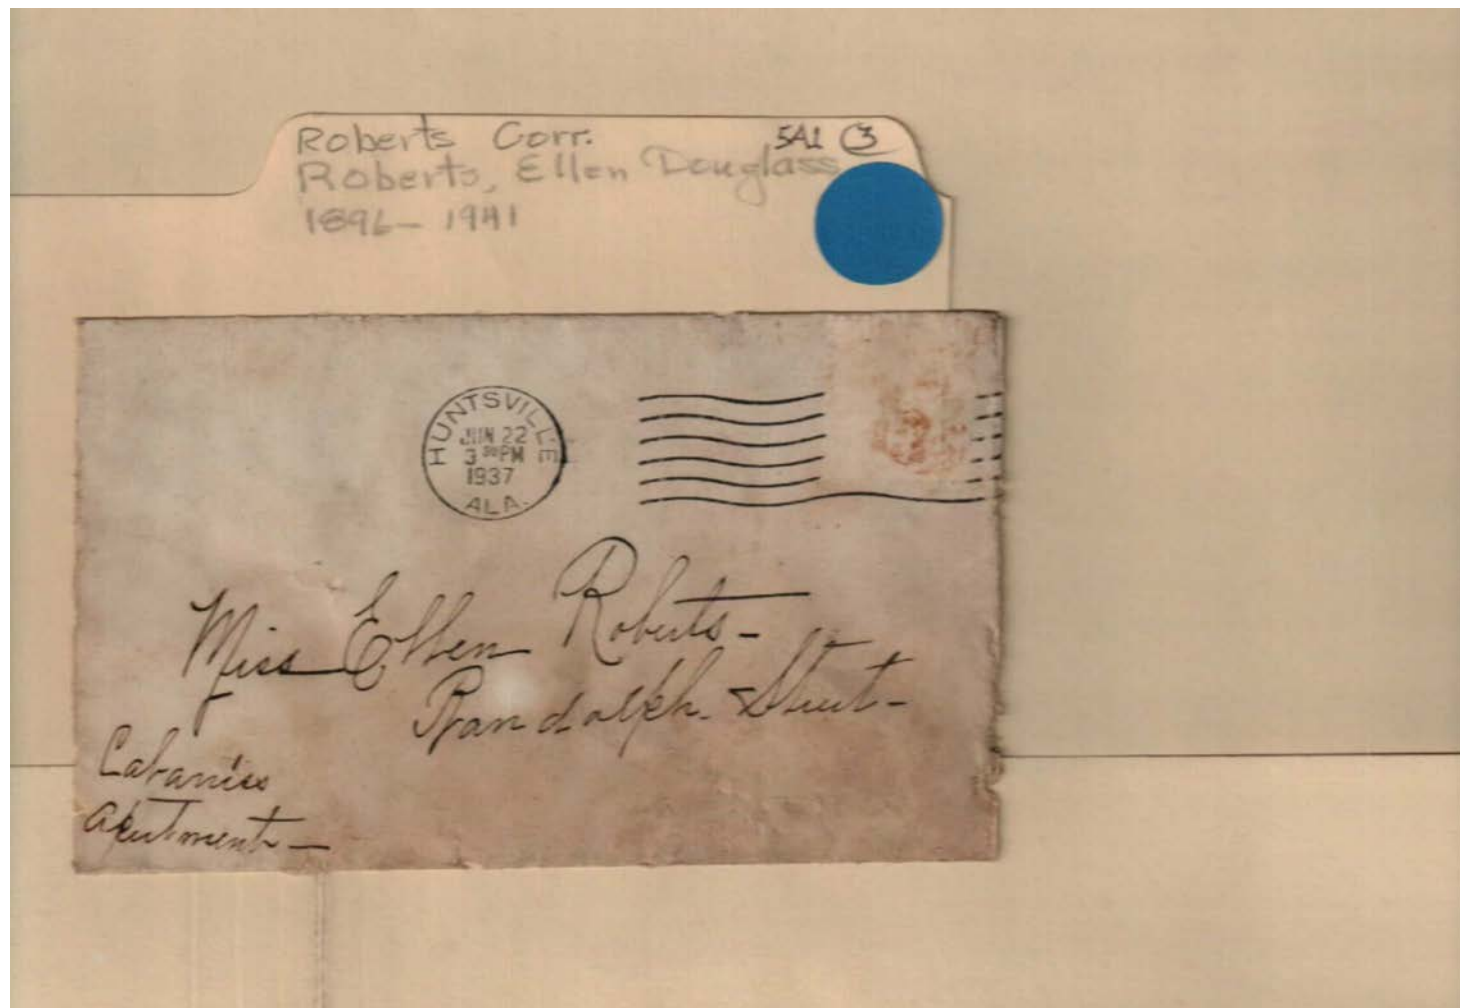 Roberts Corr. 5A1 3
Roberts, Ellen Douglass
1896 - 1941
HUNTSVILLE
JUN 22
3 30 PM
1937
ALA.
Miss Ellen Roberts -
Randolph Street -
Cabaniss
Apartment -